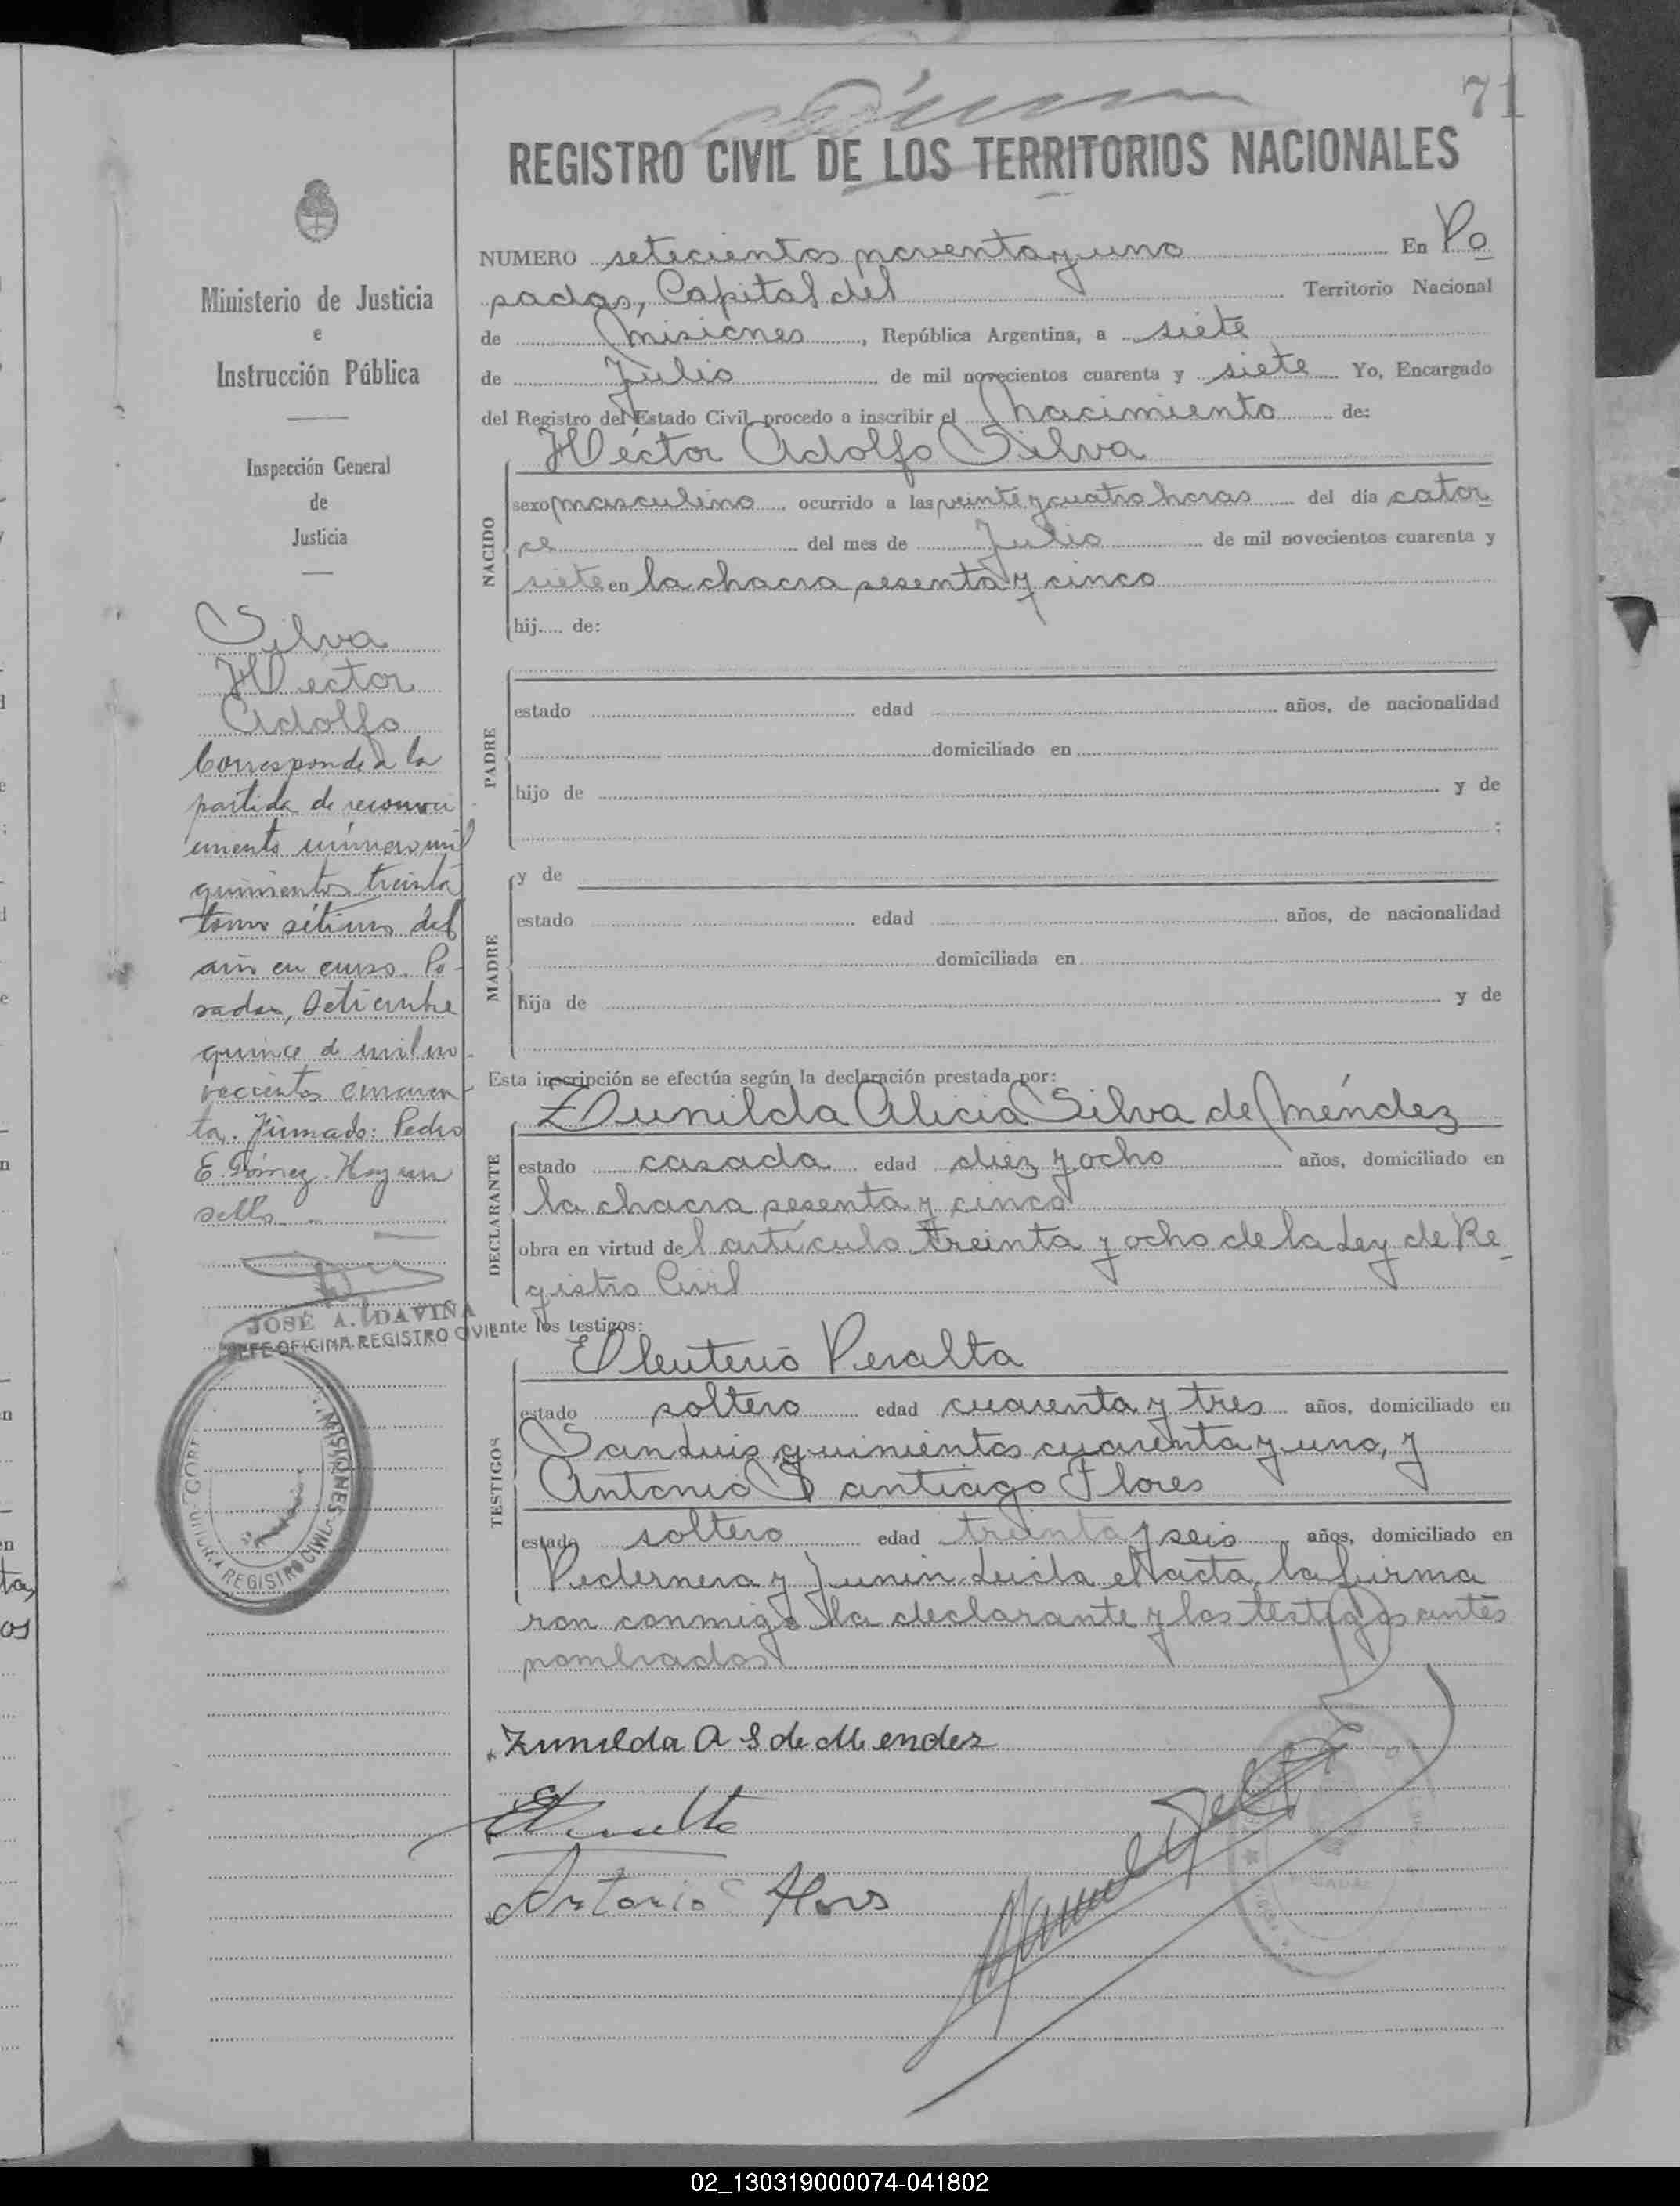 71
REGISTRO CIVIL DE LOS TERRITORIOS NACIONALES
NUMERO setecientos noventa y uno En Po
sadas, Capital del Territorio Nacional
de Misiones, República Argentina, a siete
de Julio de mil novecientos cuarenta y siete Yo, Encargado
del Registro del Estado Civil, procedo a inscribir el Nacimiento de:
Héctor Adolfo Silva
NACIDO
sexo masculino ocurrido a las veinte y cuatro horas del día cator
ce del mes de Julio de mil novecientos cuarenta y
siete en la chacra sesenta y cinco
hij.... de:
PADRE
estado edad años, de nacionalidad
domiciliado en
hijo de y de
;
MADRE
y de
estado edad años, de nacionalidad
domiciliada en
hija de y de
Esta inscripción se efectúa según la declaración prestada por:
Zunilda Alicia Silva de Méndez
DECLARANTE
estado casada edad diez y ocho años, domiciliado en
la chacra sesenta y cinco
obra en virtud del artículo treinta y ocho de la Ley de Re
gistro Civil
ante los testigos:
Eleuterio Peralta
TESTIGOS
estado soltero edad cuarenta y tres años, domiciliado en
San Luis quinientos cuarenta y uno, y
Antonio Santiago Flores
estado soltero edad treinta y seis años, domiciliado en
Pedernera y Junin. Leida el acta, la firma
ron conmigo la declarante y los testigos antes
nombrados
Zunilda A S de Mendez
Antonio S Flores
Manuel
Ministerio de Justicia
e
Instrucción Pública
Inspección General
de
Justicia
Silva
Héctor
Adolfo
Corresponde a la
partida de reconoci
miento número mil
quinientos treinta
tomo sétimo del
año en curso. Po
sadas, Setiembre
quince de mil no
vecientos cincuen
ta. Firmado: Pedro
E. Gómez. Hay un
sello.
JOSÉ A. DAVIÑA
JEFE OFICINA REGISTRO CIVIL
MISIONES
REGISTRO CIVIL
02_130319000074-041802